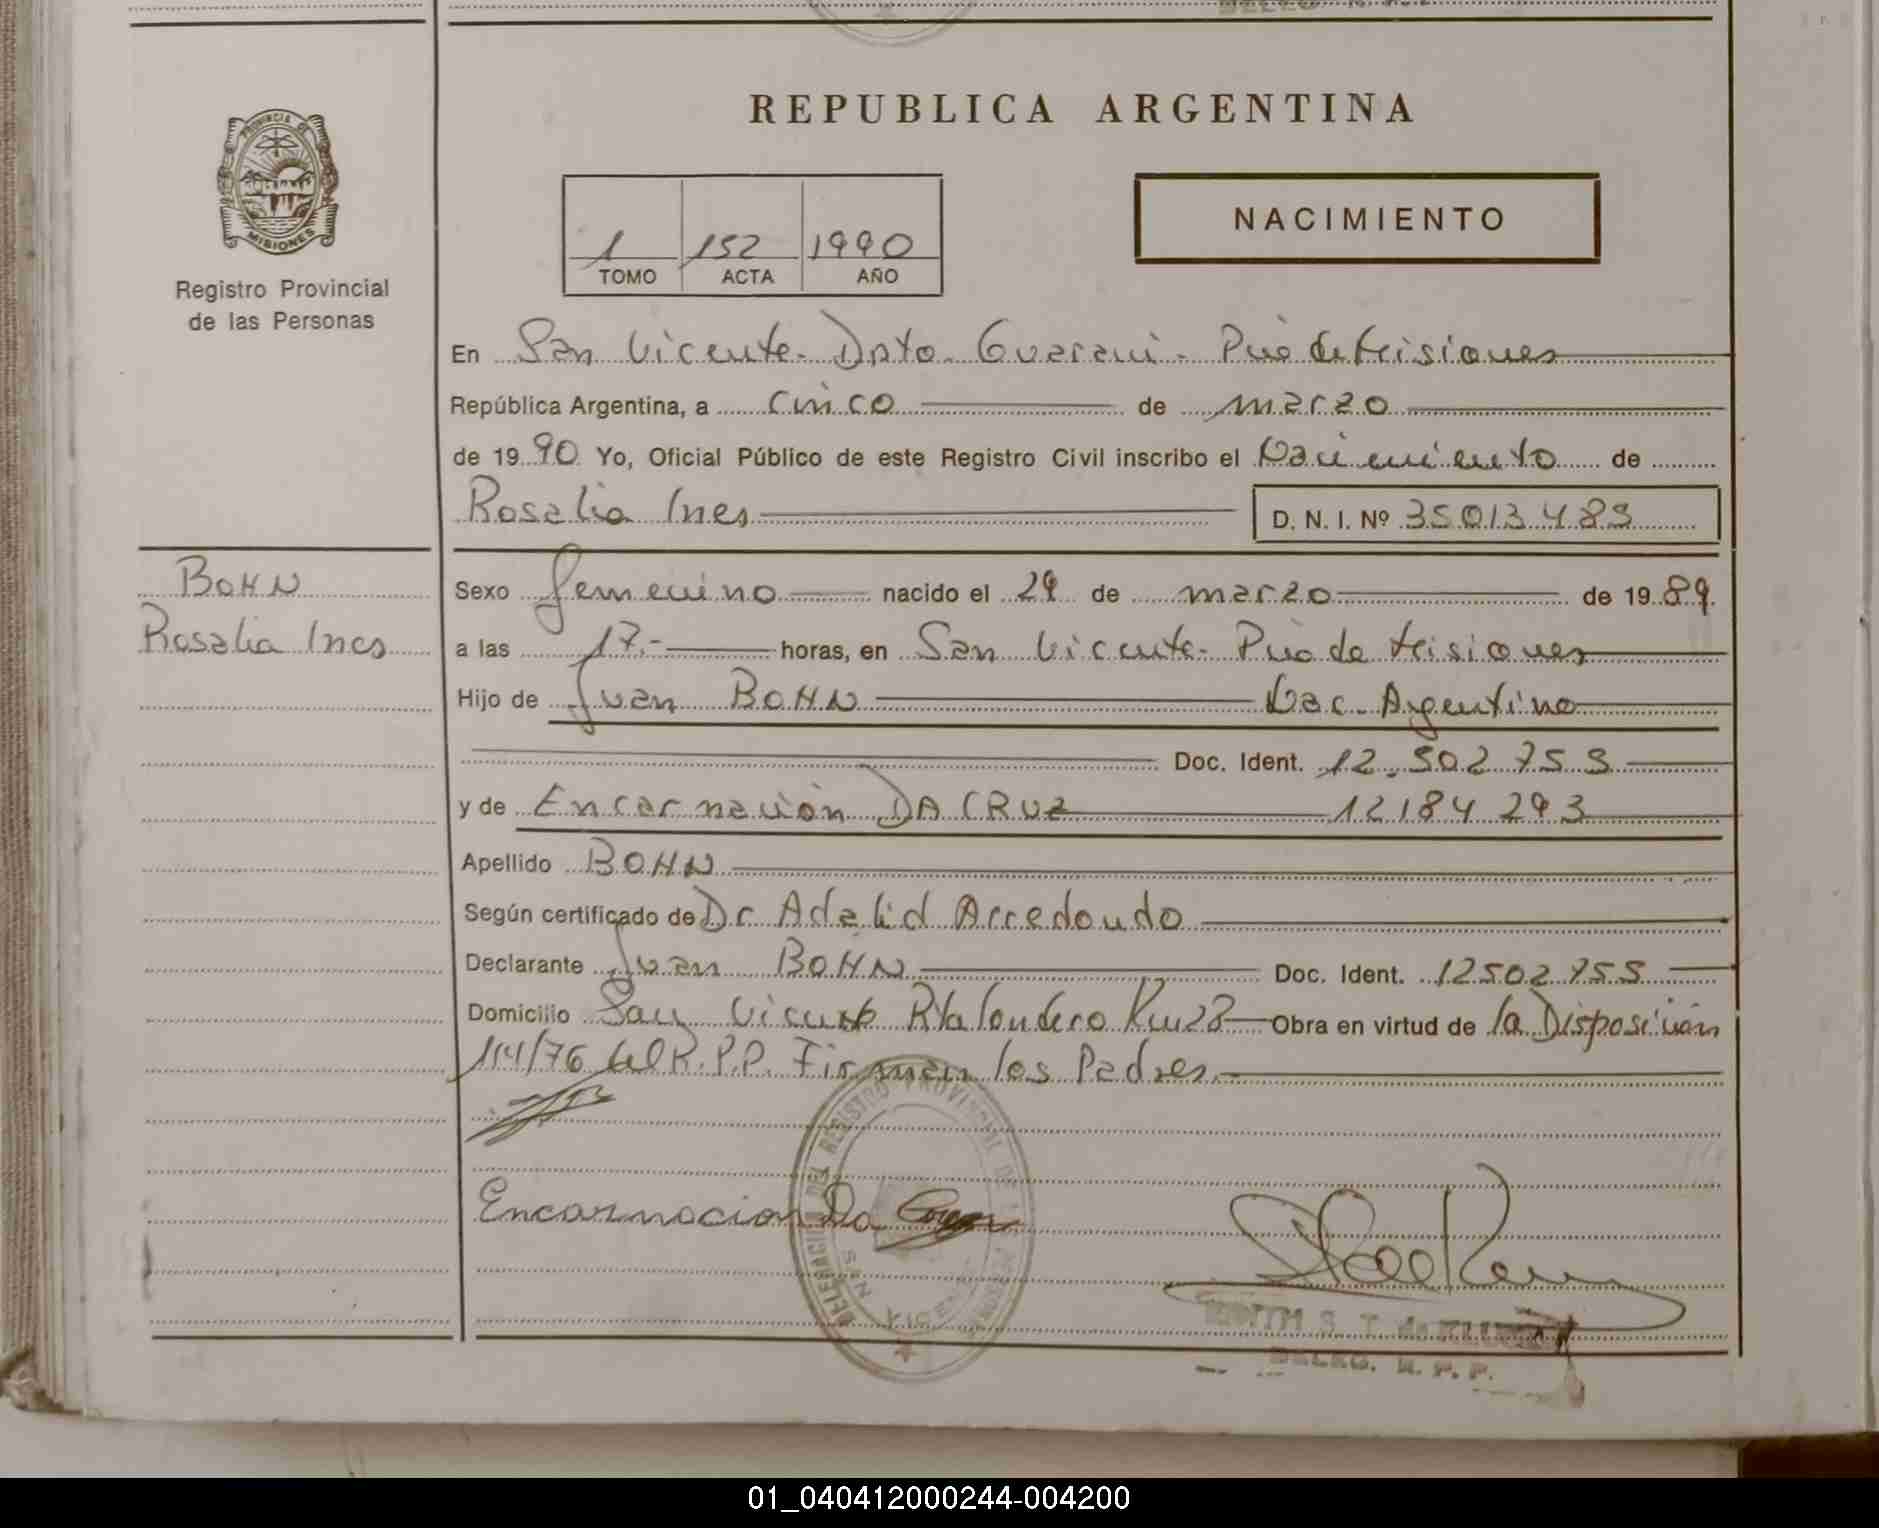 REPUBLICA ARGENTINA
PROVINCIA DE
MISIONES
Registro Provincial
de las Personas
1 152 1990
TOMO ACTA AÑO
NACIMIENTO
En San Vicente - Dpto. Guarani - Pcia de Misiones
República Argentina, a cinco de marzo
de 1990 Yo, Oficial Público de este Registro Civil inscribo el Nacimiento de
Rosalia Ines D. N. I. Nº 35013489
BOHN
Rosalia Ines
Sexo femenino nacido el 29 de marzo de 1989
a las 17.- horas, en San Vicente - Pcia de Misiones
Hijo de Juan BOHN Nac. Argentino
Doc. Ident. 12.502 755
y de Encarnación DA CRUZ 12184 293
Apellido BOHN
Según certificado de Dr Adalid Arredondo
Declarante Juan BOHN Doc. Ident. 12502755
Domicilio San Vicente Km Obra en virtud de la Disposición
114/76 del R.P.P. Firman los Padres.
Encarnacion Da
DELEGACION DEL REGISTRO PROVINCIAL DE LAS PERSONAS
SAN VICENTE
DELEG. R. P. P.
01_040412000244-004200